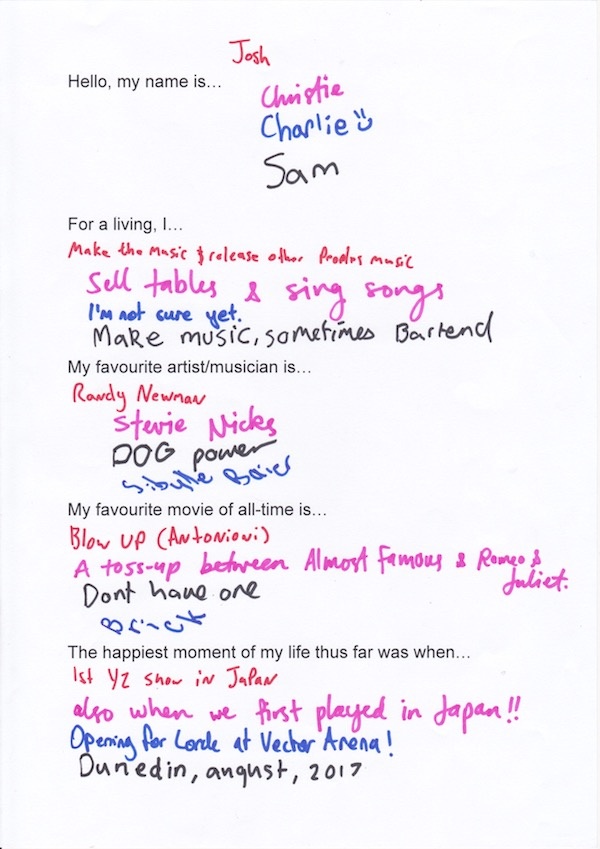 Josh
Hello, my name is…
Christie
Charlie
Sam
For a living, I…
Make the Music & release other Peoples music
Sell tables & sing songs
I'm not sure yet.
Make music, sometimes Bartend
My favourite artist/musician is…
Randy Newman
Stevie Nicks
DOG power
Sibylle Baier
My favourite movie of all-time is…
Blow UP (Antonioni)
A toss-up between Almost Famous & Romeo &
Juliet.
Dont have one
Brick
The happiest moment of my life thus far was when…
1st YZ show in Japan
also when we first played in Japan!!
Opening for Lorde at Vector Arena!
Dunedin, august, 2017